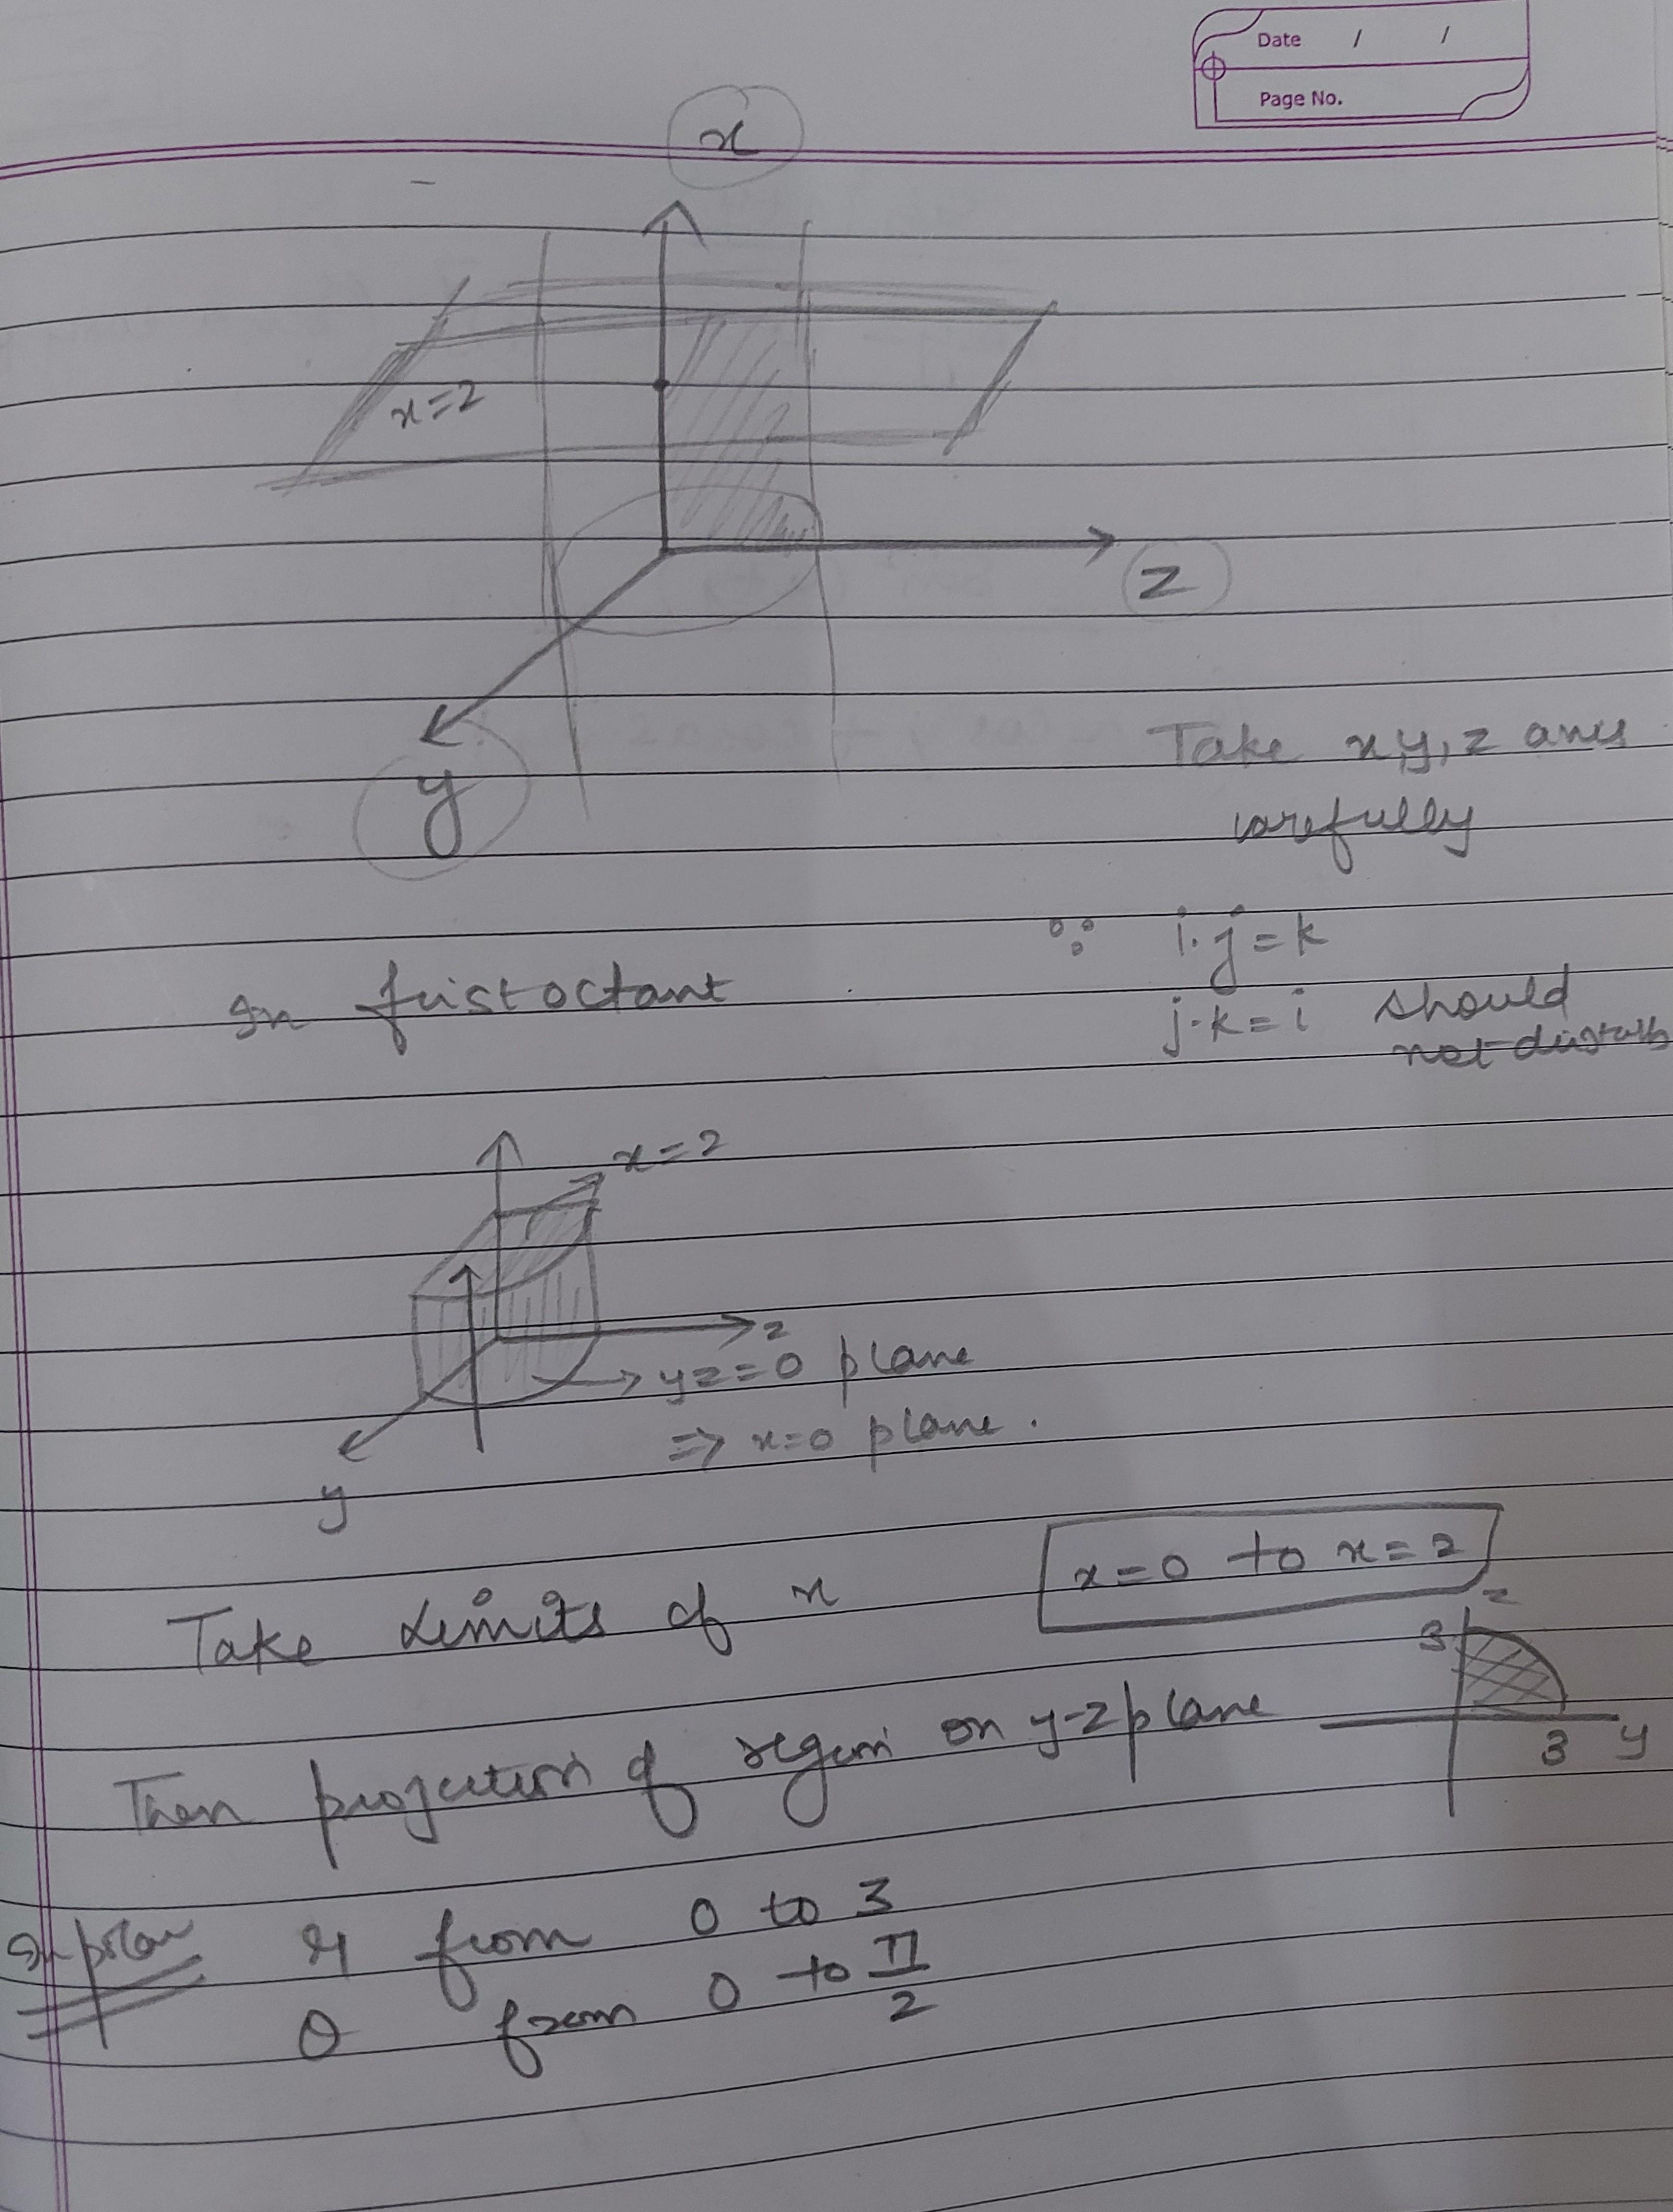 Date / /
Page No.
x
x=2
z
y
Take x,y,z axes
carefully
∵ i.j=k
In first octant
j.k=i should
not disturb
x=2
z
yz=0 plane
⇒ x=0 plane.
y
Take Limits of x
x=0 to x=2
z
3
Then projection of region on y-z plane
3 y
In polar r from 0 to 3
θ from 0 to π/2